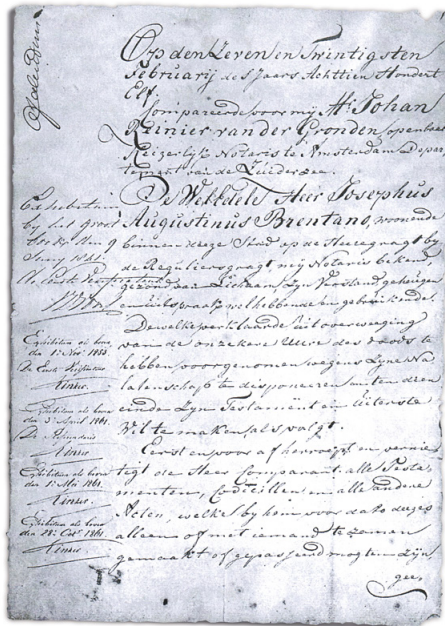 Op den Zeven en Twintigsten
Februarij des Jaars Achttien Hondert
Elf.
Compareerde voor mij Mr. Johan
Reinier van der Gronden, openbaar
Keizerlijk Notaris te Amsterdam Depar
tement van de Zuiderzee.
De WelEdele Heer Josephus
Augustinus Brentano, woonende
binnen deeze Stad op de Heeregragt by
de Reguliersgragt, mij Notaris bekend,
gezond van Lichaam, Zyn Verstand, geheugen
en uitspraak wel hebbende en gebruikende.
Dewelke verklaarde uit overweeging
van de onzekere Uure des doods te
hebben voorgenomen wegens Zyne Na
latenschap te disponeeren en ten dien
einde Zyn Testament en Uiterste
Wil te maken, als volgt.
Eerst en vooraf herroept en vernie
tigt de Heer Comparant alle Testa
menten, Codicillen en alle andere
Acten, welke by hem voor dato deezes
alleen of met iemand te zamen
gemaakt of gepasseerd mogten zyn
gee,
Exhibitum als boven
den 1 Novr
Exhibitum als boven
den 3 April 1861.
Exhibitum als boven
den 1 Mei 1861.
Exhibitum als boven
den 28 Octr 1861.